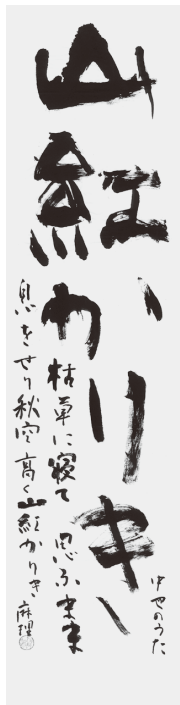 山紅かりき
中也のうた
枯草に寝て 思ふまま
息をせり秋空高く山紅かりき 麻理